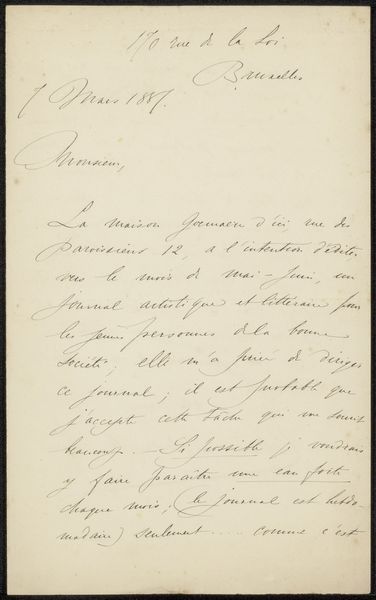 170 rue de la Loi
Bruxelles
7 Mars 1887.
Monsieur,
La maison Goemaere d'ici, rue des
Paroissiens 12, a l'intention d'éditer
vers le mois de mai-Juin, un
journal artistique et littéraire pour
les jeunes personnes de la bonne
société; elle m'a prié de diriger
ce journal; il est probable que
j'accepte cette tâche qui me sourit
beaucoup. - Si possible je voudrais
y faire paraître une eau forte
chaque mois; (le journal est hebdo
madaire) seulement .... comme c'est